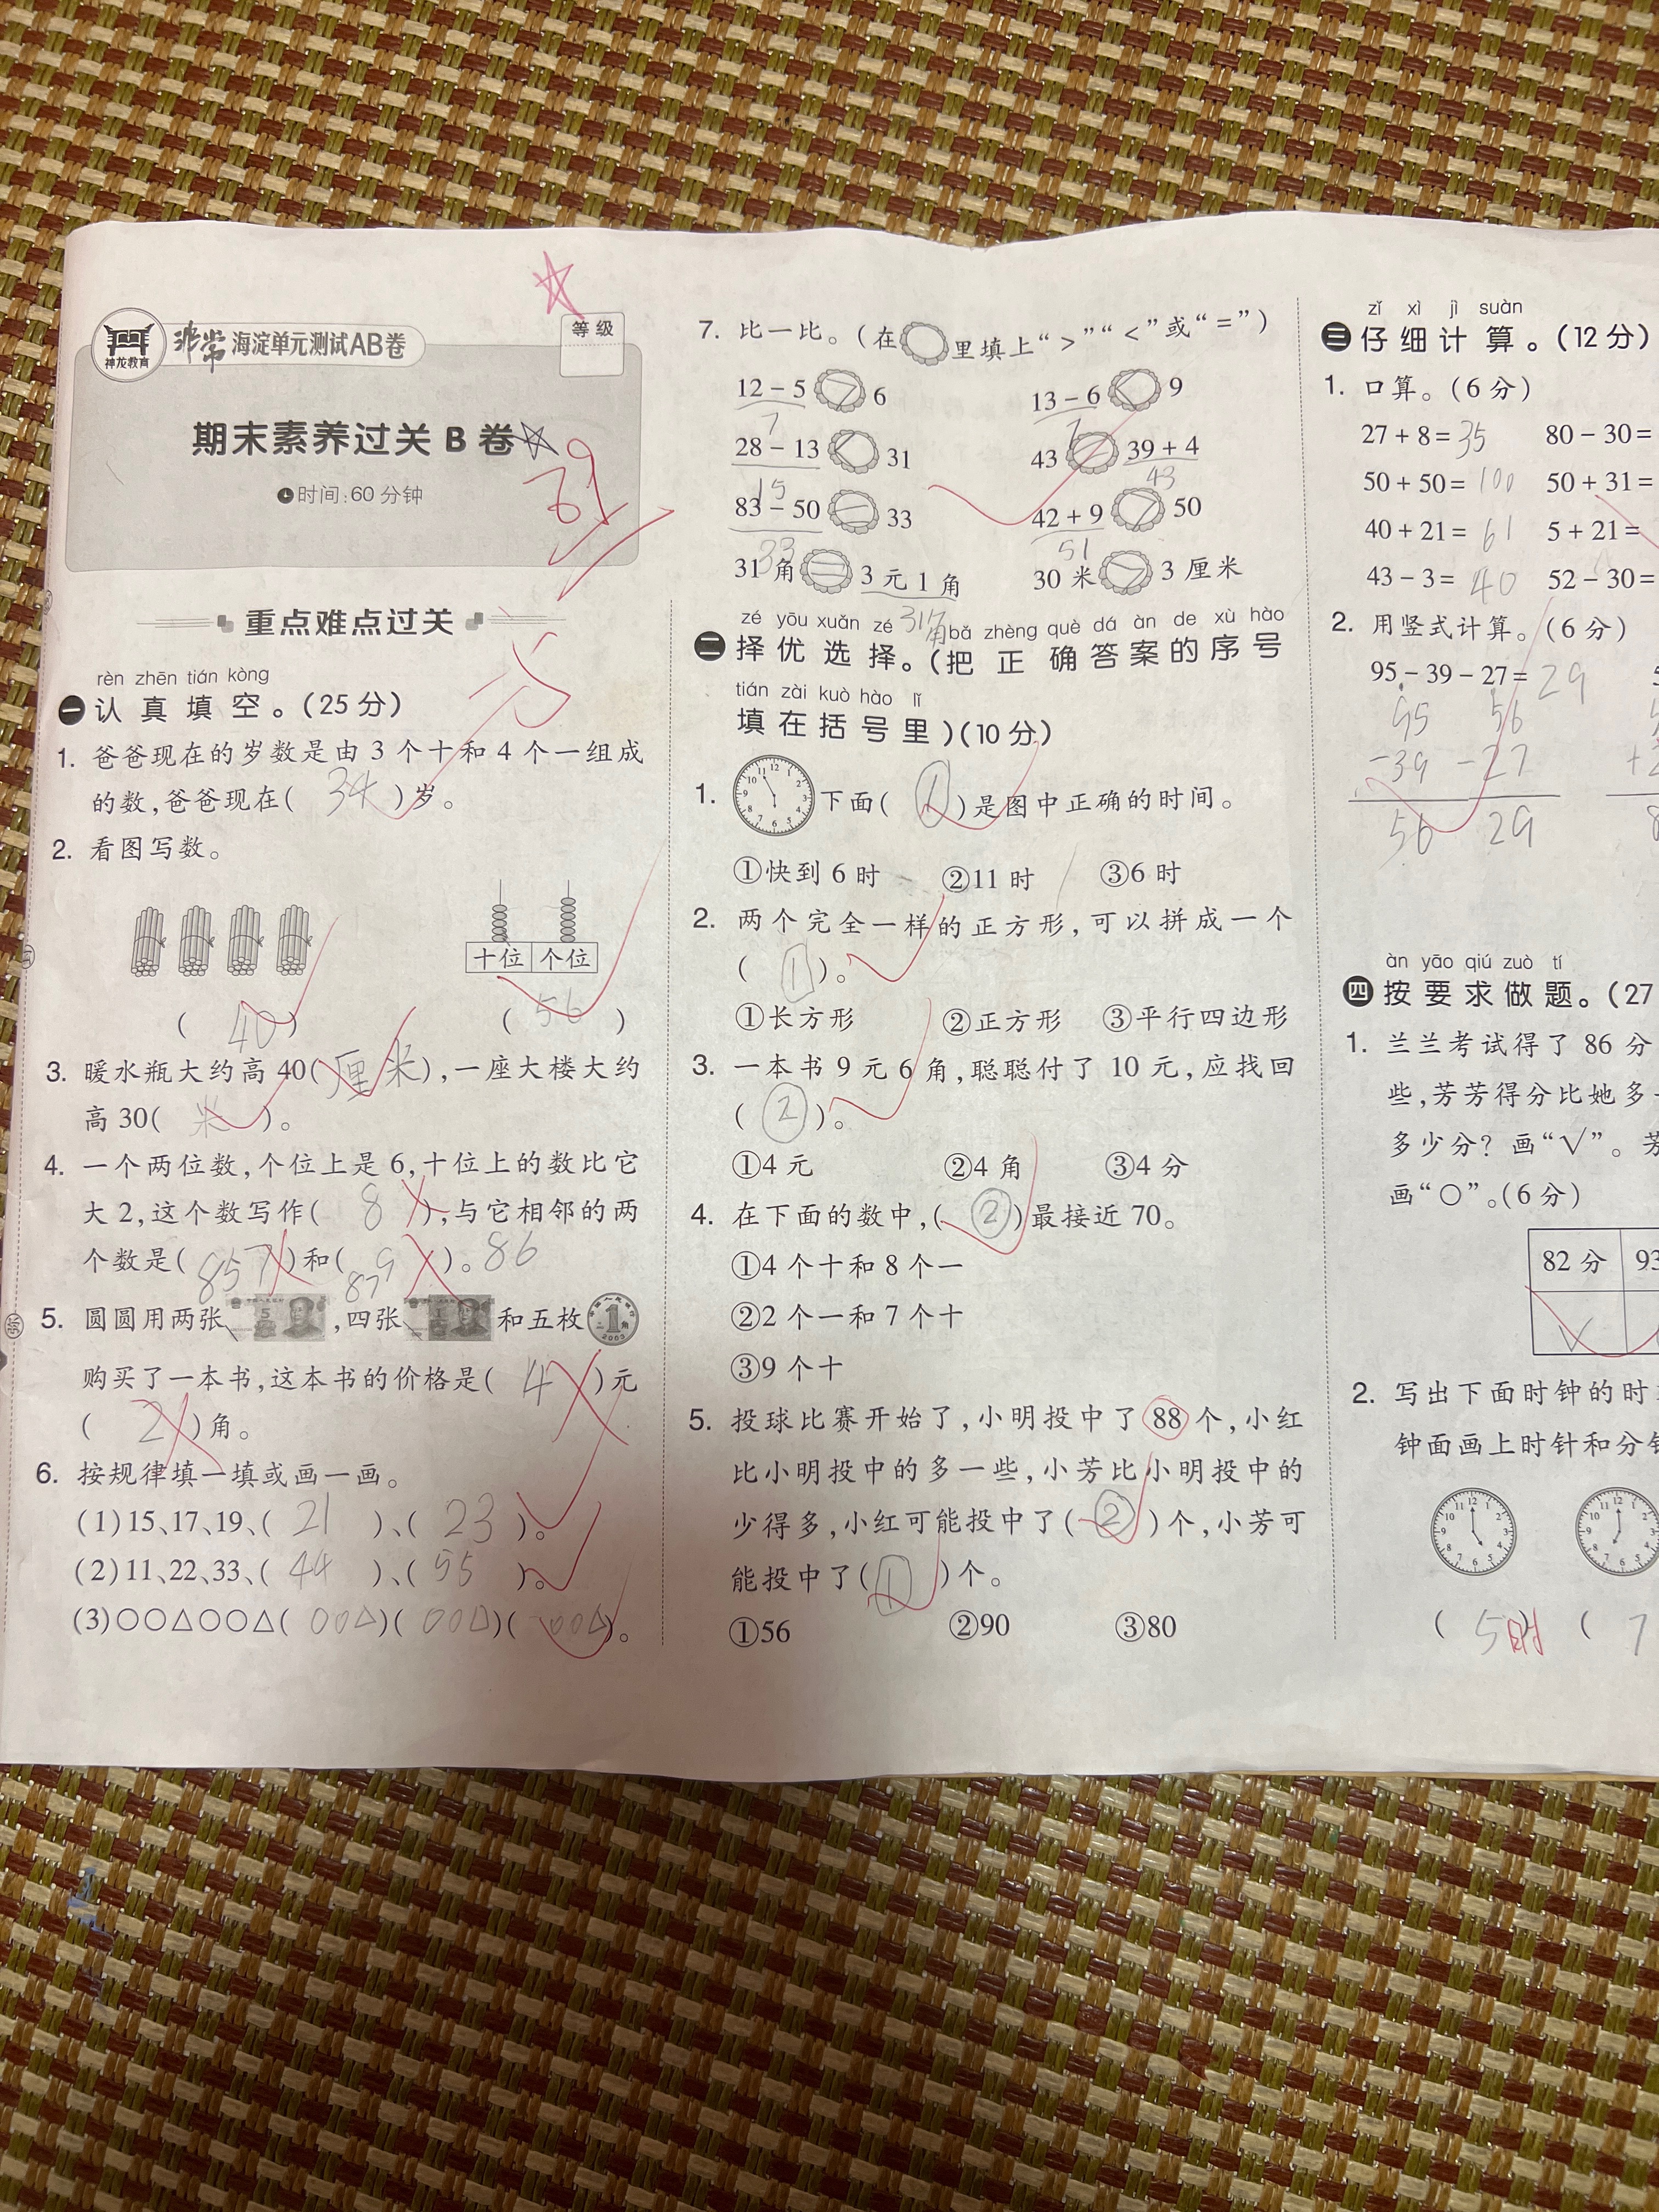 神龙教育
非常 海淀单元测试AB卷
等级
期末素养过关 B 卷
时间:60 分钟
重点难点过关
rèn zhēn tián kòng
一 认真填空。(25 分)
1. 爸爸现在的岁数是由 3 个十和 4 个一组成
的数,爸爸现在( 34 )岁。
2. 看图写数。
十位 个位
( 40 ) ( 56 )
3. 暖水瓶大约高 40( 厘米 ),一座大楼大约
高 30( 米 )。
4. 一个两位数,个位上是 6,十位上的数比它
大 2,这个数写作( 8 ),与它相邻的两
个数是( 857 )和( 879 )。86
5. 圆圆用两张 ,四张 和五枚 1角
购买了一本书,这本书的价格是( 4 )元
( 2 )角。
6. 按规律填一填或画一画。
(1)15、17、19、( 21 )、( 23 )。
(2)11、22、33、( 44 )、( 55 )。
(3)○○△○○△( ○○△ )( ○○△ )( ○○△ )。
7. 比一比。(在 里填上“>”“<”或“=”)
12 − 5 > 6 13 − 6 < 9
7 7
28 − 13 < 31 43 = 39 + 4
15 43
83 − 50 = 33 42 + 9 > 50
33 51
31 角 = 3 元 1 角 30 米 > 3 厘米
31角
zé yōu xuǎn zé bǎ zhèng què dá àn de xù hào
二 择优选择。(把正确答案的序号
tián zài kuò hào lǐ
填在括号里)(10 分)
1. 下面( ① )是图中正确的时间。
①快到 6 时 ②11 时 ③6 时
2. 两个完全一样的正方形,可以拼成一个
( ① )。
①长方形 ②正方形 ③平行四边形
3. 一本书 9 元 6 角,聪聪付了 10 元,应找回
( ② )。
①4 元 ②4 角 ③4 分
4. 在下面的数中,( ② )最接近 70。
①4 个十和 8 个一
②2 个一和 7 个十
③9 个十
5. 投球比赛开始了,小明投中了 88 个,小红
比小明投中的多一些,小芳比小明投中的
少得多,小红可能投中了( ② )个,小芳可
能投中了( ① )个。
①56 ②90 ③80
zǐ xì jì suàn
三 仔细计算。(12 分)
1. 口算。(6 分)
27 + 8 = 35 80 − 30 =
50 + 50 = 100 50 + 31 =
40 + 21 = 61 5 + 21 =
43 − 3 = 40 52 − 30 =
2. 用竖式计算。(6 分)
95 − 39 − 27 = 29
95 56
−39 −27
56 29
àn yāo qiú zuò tí
四 按要求做题。(27
1. 兰兰考试得了 86 分
些,芳芳得分比她多
多少分? 画“√”。芳
画“○”。(6 分)
82 分 93
√
2. 写出下面时钟的时
钟面画上时针和分针
( 5时 ) ( 7